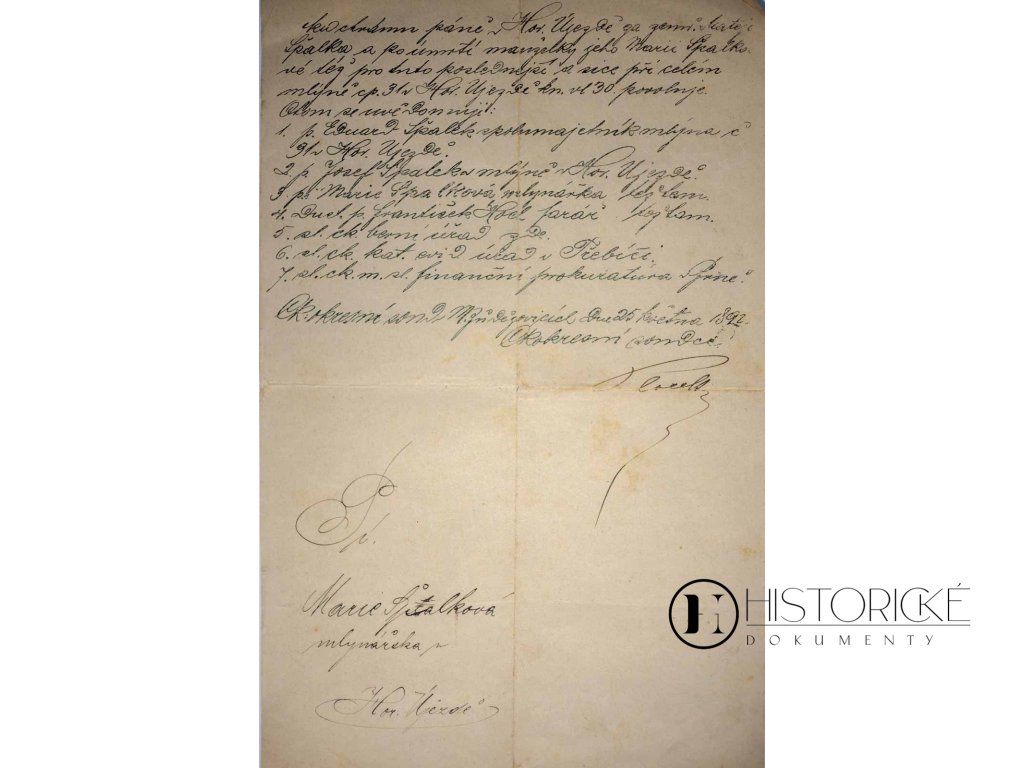 ku chrámu páně v Hor. Újezdě za zemř. Matěje
Špalka a po úmrtí manželky jeho Marie Špalko-
vé též pro tuto poslednější a sice při celém
mlýně cp. 31 v Hor. Újezdě kn. vl 30. povoluje.
O tom se uvědomují:
1. p. Eduard Špalek spolumajetník mlýna č
31 v Hor. Újezdě.
2. p. Josef Špalek v mlýně v Hor. Újezdě.
3. pí. Marie Špalková mlynářka též tam.
4. Duct. p. František farář tož tam.
5. sl. ck. berní úřad zde.
6. sl. ck. kat. evid úřad v Třebíči.
7. sl. ck. m. sl. finanční prokuratura v Brně.
Ck okresní soud M. Budějovicích Dne 25 května 1892.
Ck okresní soudce:
Pí.
Marie Špalková
mlynářka v
Hor. Újezdě
HISTORICKÉ
DOKUMENTY